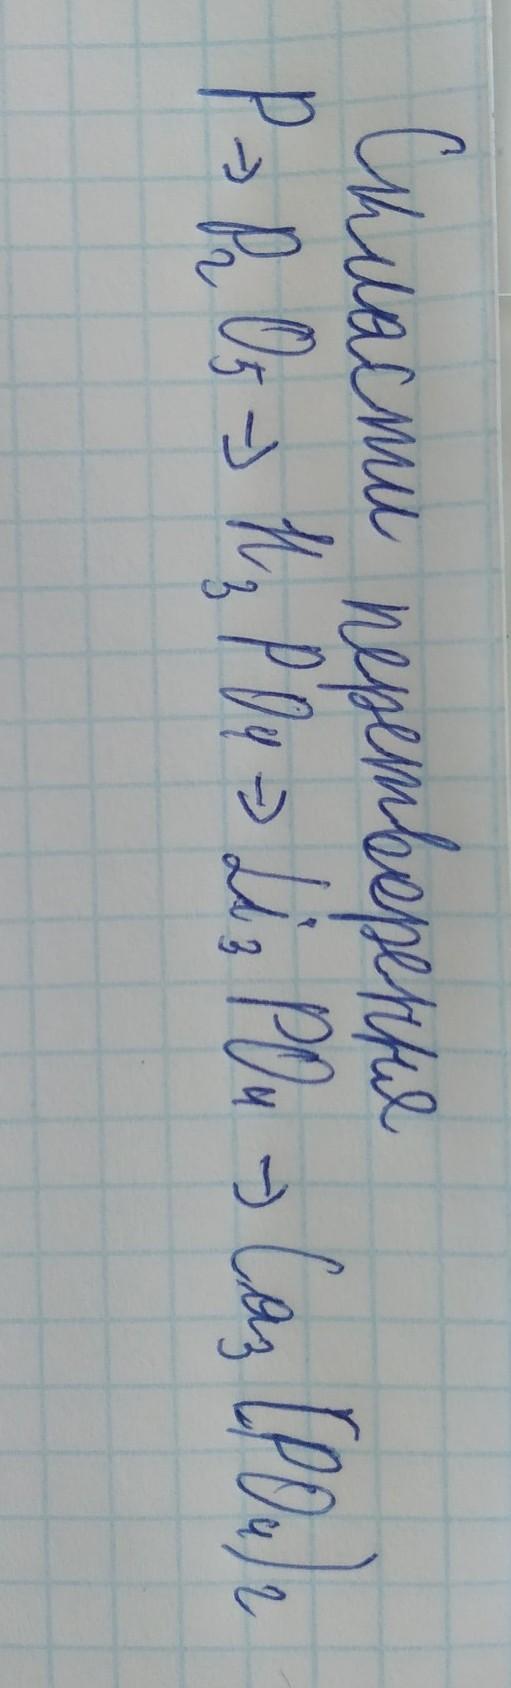 Скласти перетворення
P → P₂O₅ → H₃PO₄ → Li₃PO₄ → Ca₃(PO₄)₂